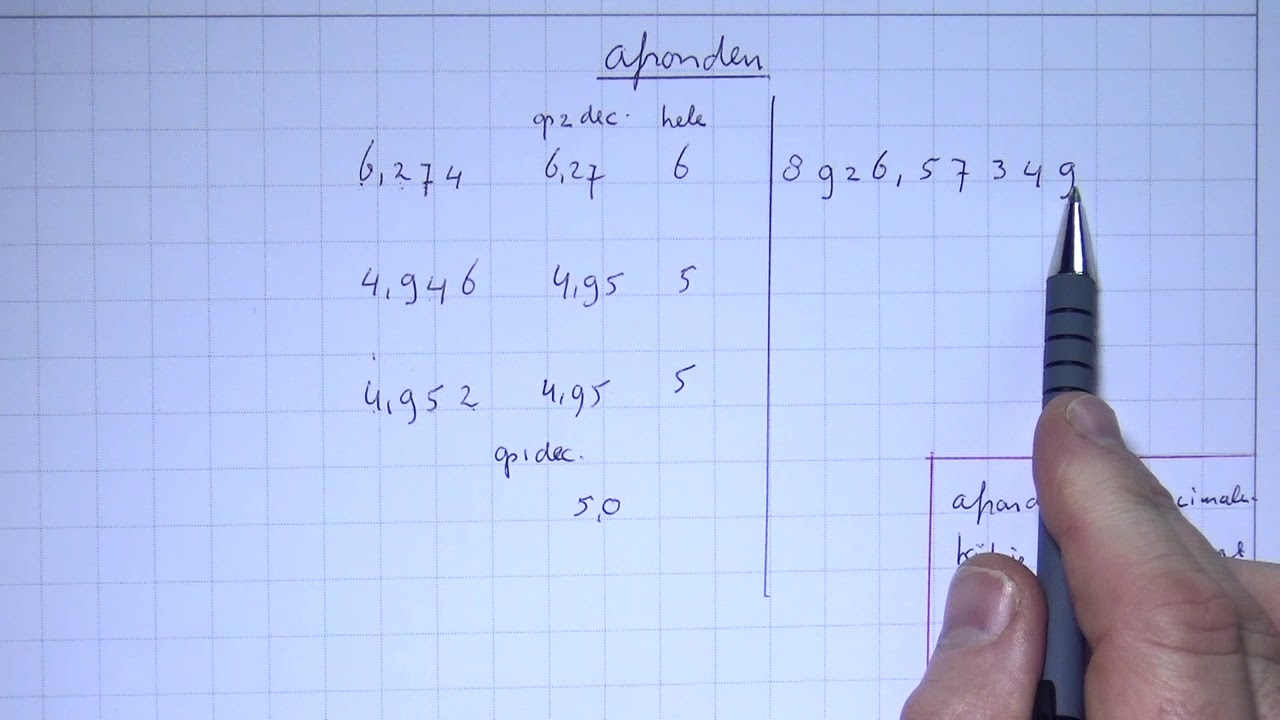 afronden
op 2 dec. hele
6,274 6,27 6
8926,57349
4,946 4,95 5
4,952 4,95 5
op 1 dec.
5,0